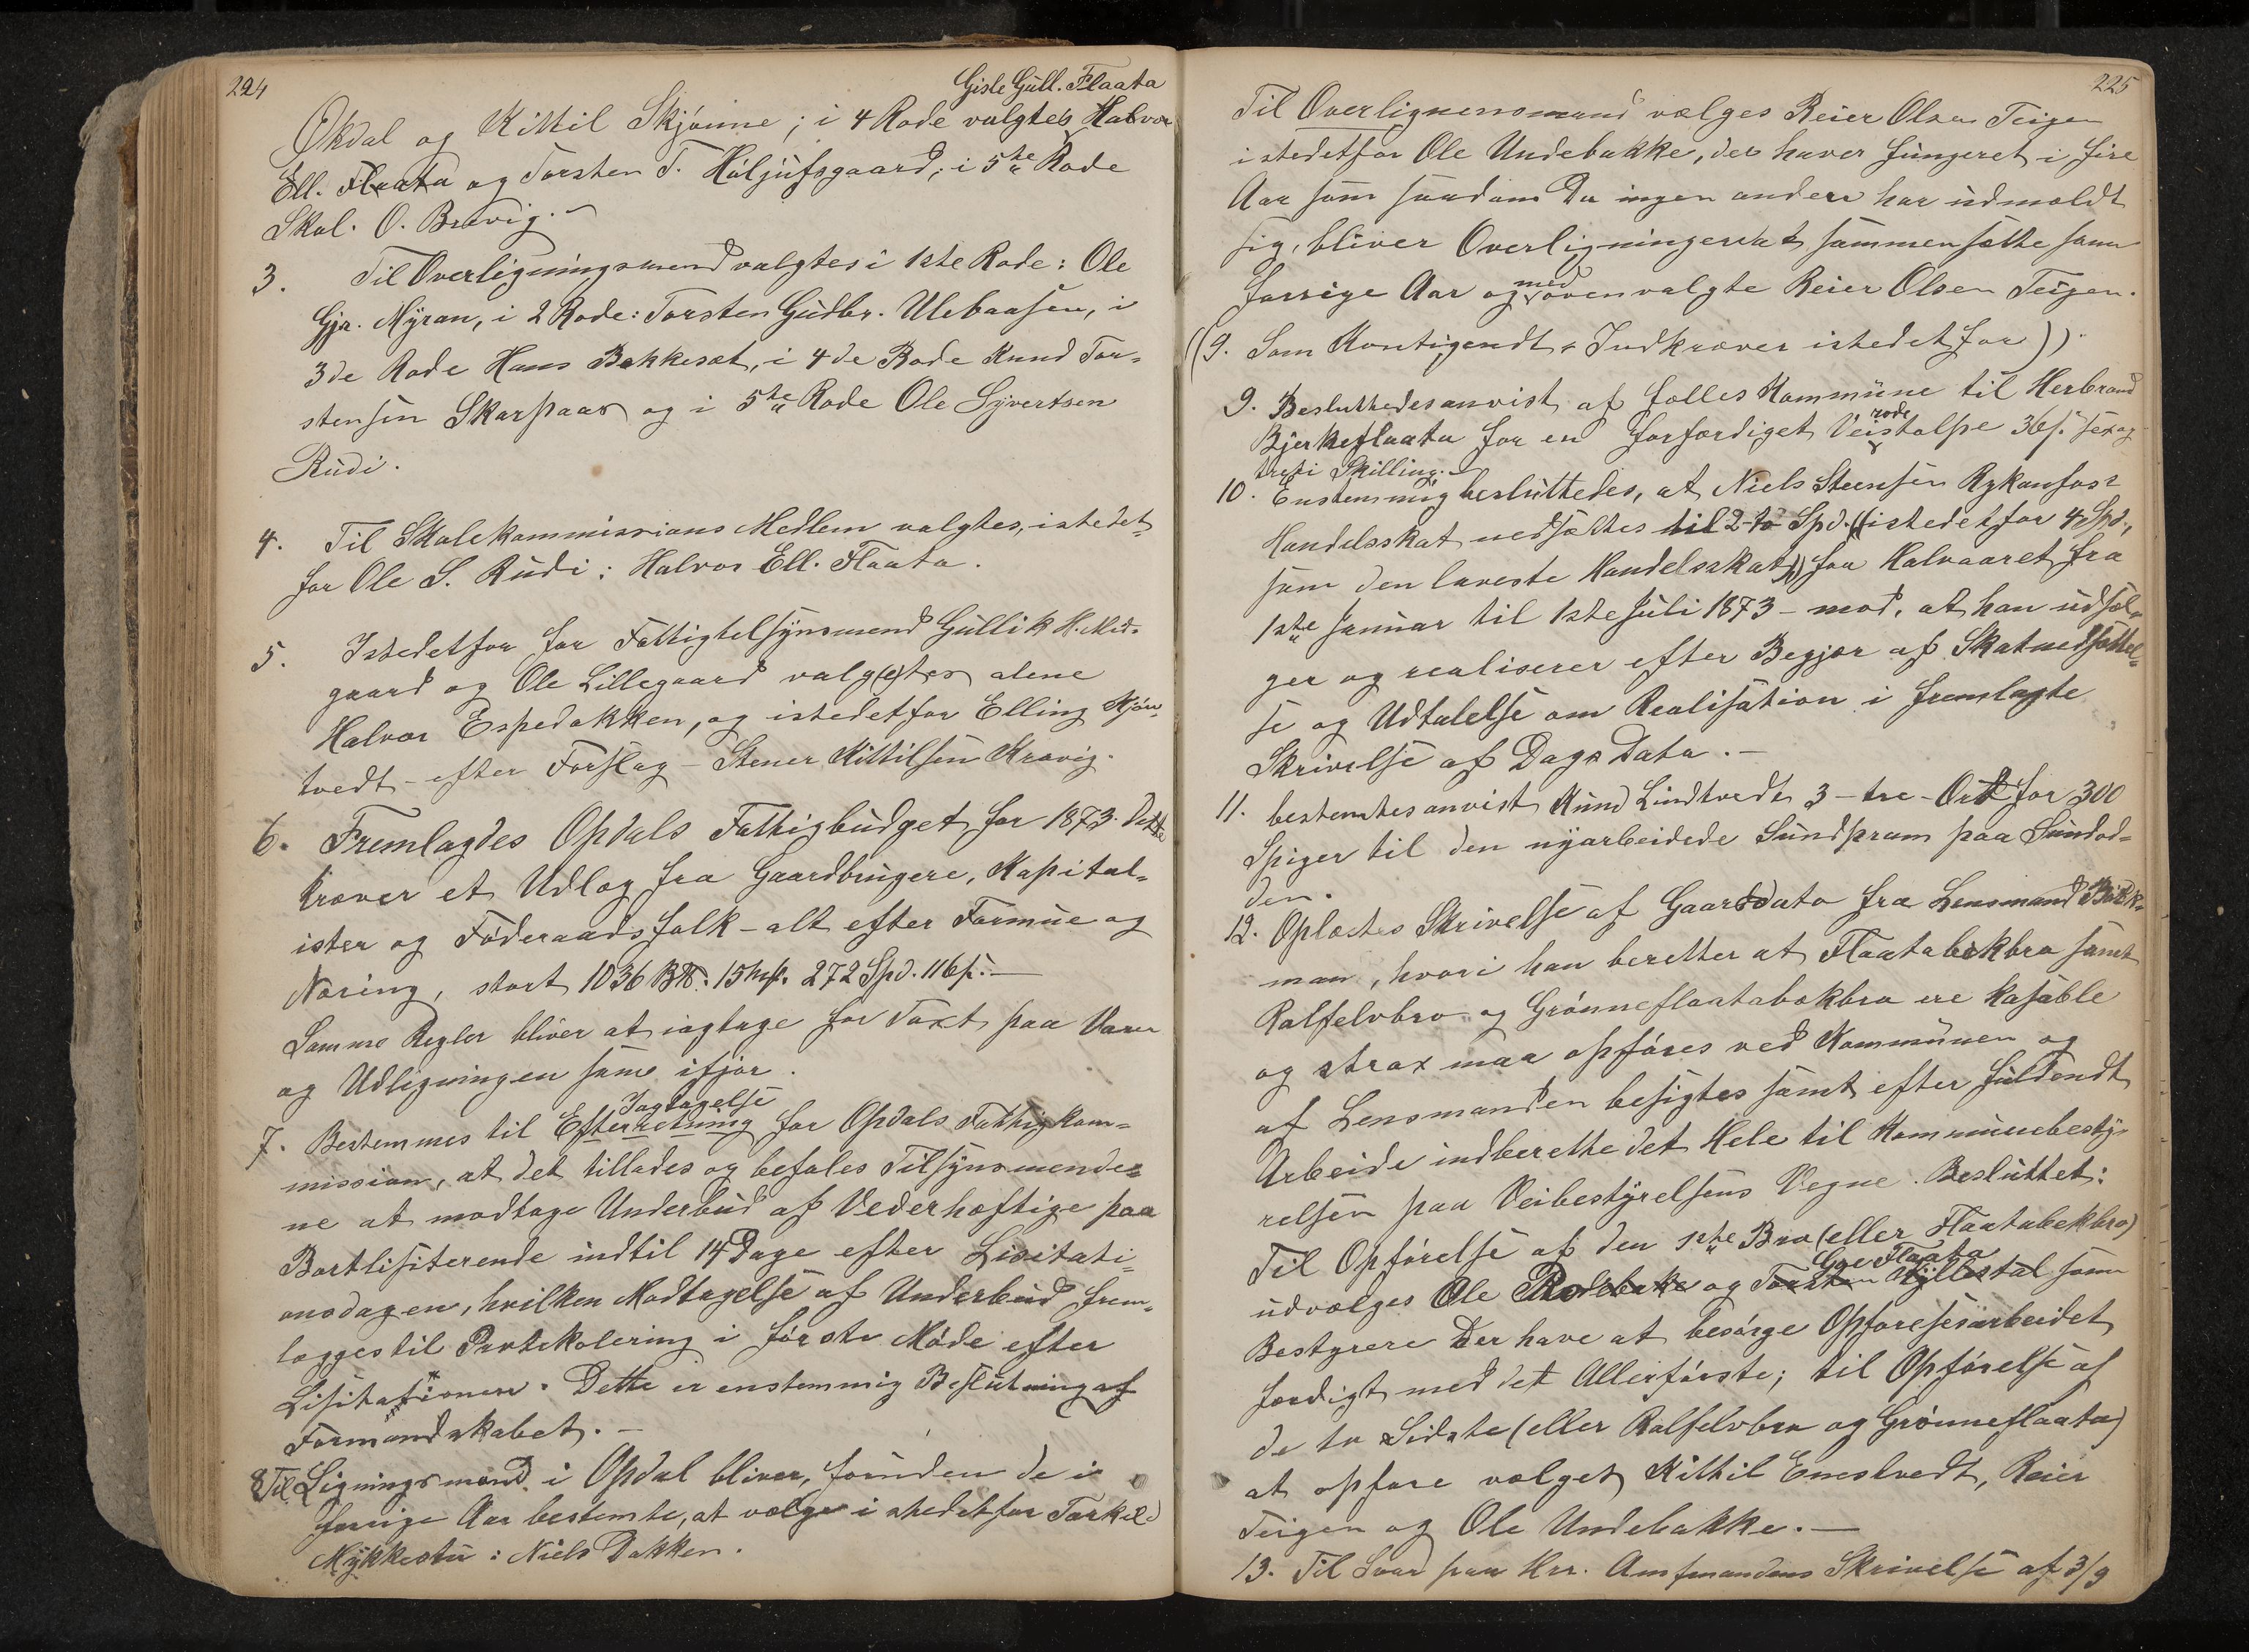 224
Gisle Gull. Flaata
Økdal og Kittil Skjønne; i 4 Rode valgtes Halvor
Ell. Flaata og Torsten T. Høljufsgaard; i 5te Rode
Skol. O. Bravig. -
3. Til Overligningsmend valgtes i 1ste Rode: Ole
Gjr. Myran, i 2 Rode: Torsten Gudbr. Ulebaasen, i
3de Rode Hans Bakkesæt, i 4de Rode Knud Tor-
stensen Skarpaas og i 5te Rode Ole Syvertsen
Rudi.
4. Til Skolekommissions Medlem valgtes, istedet
for Ole S. Rudi: Halvor Ell. Flaata.
5. Istedetfor for Fattigtelsynsmend Gullik H. Mid-
gaard og Ole Lillegaard valg(e)tes alene
Halvor Espedokken, og istedetfor Elling Kjøn-
tvedt - efter Forslag - Stener Kittilsen Kravig.
6. Fremlagdes Opdals Fattigbudget for 1873. Dette
kræver et Udlæg fra Gaardbrugere, Kapital-
ister og Føderaadsfolk - alt efter Formue og
Næring, stort 1036 B℔. 15 mp. 272 Spd. 116 s. -
Samme Regler bliver at iagtage for Taxt paa Varer
og Udligningen som ifjor.
Iagtagelse
7. Bestemmes til Efterretning for Opdals Fattigkom-
mission, at det tillades og befales Tilsynsmende-
ne at modtage Underbud af Vederhæftige paa
Bortlisiterende indtil 14 Dage efter Lisitati-
onsdagen, hvilken Modtagelse af Underbud frem-
lægges til Protekolering i første Møde efter
Lisitationen. Dette er enstemmig Beslutning af
Formandskabet. -
8. Til Ligningsmænd i Opdal bliver, foruden de i
forrige Aar bestemte, at vælge i stedetfor Torkild
Mykkestu: Niels Dokken.
225
Til Overlignensmand vælges Reier Olsen Teigen
i stedetfor Ole Undebakke, der haver fungeret i fire
Aar som saadan Da ingen andere har udmeldt
sig, bliver Overligningenvat sammensatte som
forrige Aar og med ovenvalgte Reier Olsen Teigen.
((9. Som Kontigendt - Indkræver istedetfor))
9. Besluttedes anvist af fælles Kommune til Herbrand
Bjerkeflaata for en forfærdiget Veirodestolpe 36 s. sex og
treti Skilling. -
10. Enstemmig besluttedes, at Niels Steensen Rykanfoss
Handelsskat nedsættes til 2-to Spd. ((istedetfor 4 Spd.,
som den laveste Handelsskat)) for Halvaaret fra
1ste Januar til 1ste Juli 1873 - mod, at han udsæl-
ger og realiserer efter Begjær af Skatnedsættel-
se og Udtalelse om Realisation i fremlagte
Skrivelse af Dags Dato. -
11. bestemtes anvist Knud Lindtvedt 3 - tre - Ort for 300
Spiger til den nyarbeidede Sundpram paa Sundod-
den.
12. Oplæstes Skrivelse af Gaarsdato fra Lensmand Bak-
man, hvori han beretter at Flaatabækbro samt
Ralfelvbro og Grønneflaatabækbro ere kasable
og strax maa opføres ved Kommunen og
af Lensmanden besigtes samt efter fuldendt
Arbeide indberette det Hele til Kommunebesty-
relsen paa Veibestyrelsens Vegne. Besluttet:
Til Opførelse af den 1ste Bro (eller Flaatabekbro)
udvælges Ole Rodebakke og Torsten Hyllestal som
Goe Flaata
Bestyrere Der have at besørge Opføresesarbeidet
færdigt med det Allerførste; til Opførelse af
de to Sidste (eller Ralfelvbro og Grønneflaata)
at opføre vælges Kittil Enestvedt, Reier
Teigen og Ole Undebakke. -
13. Til Svar paa Hrr. Amtmandens Skrivelse af 3/9